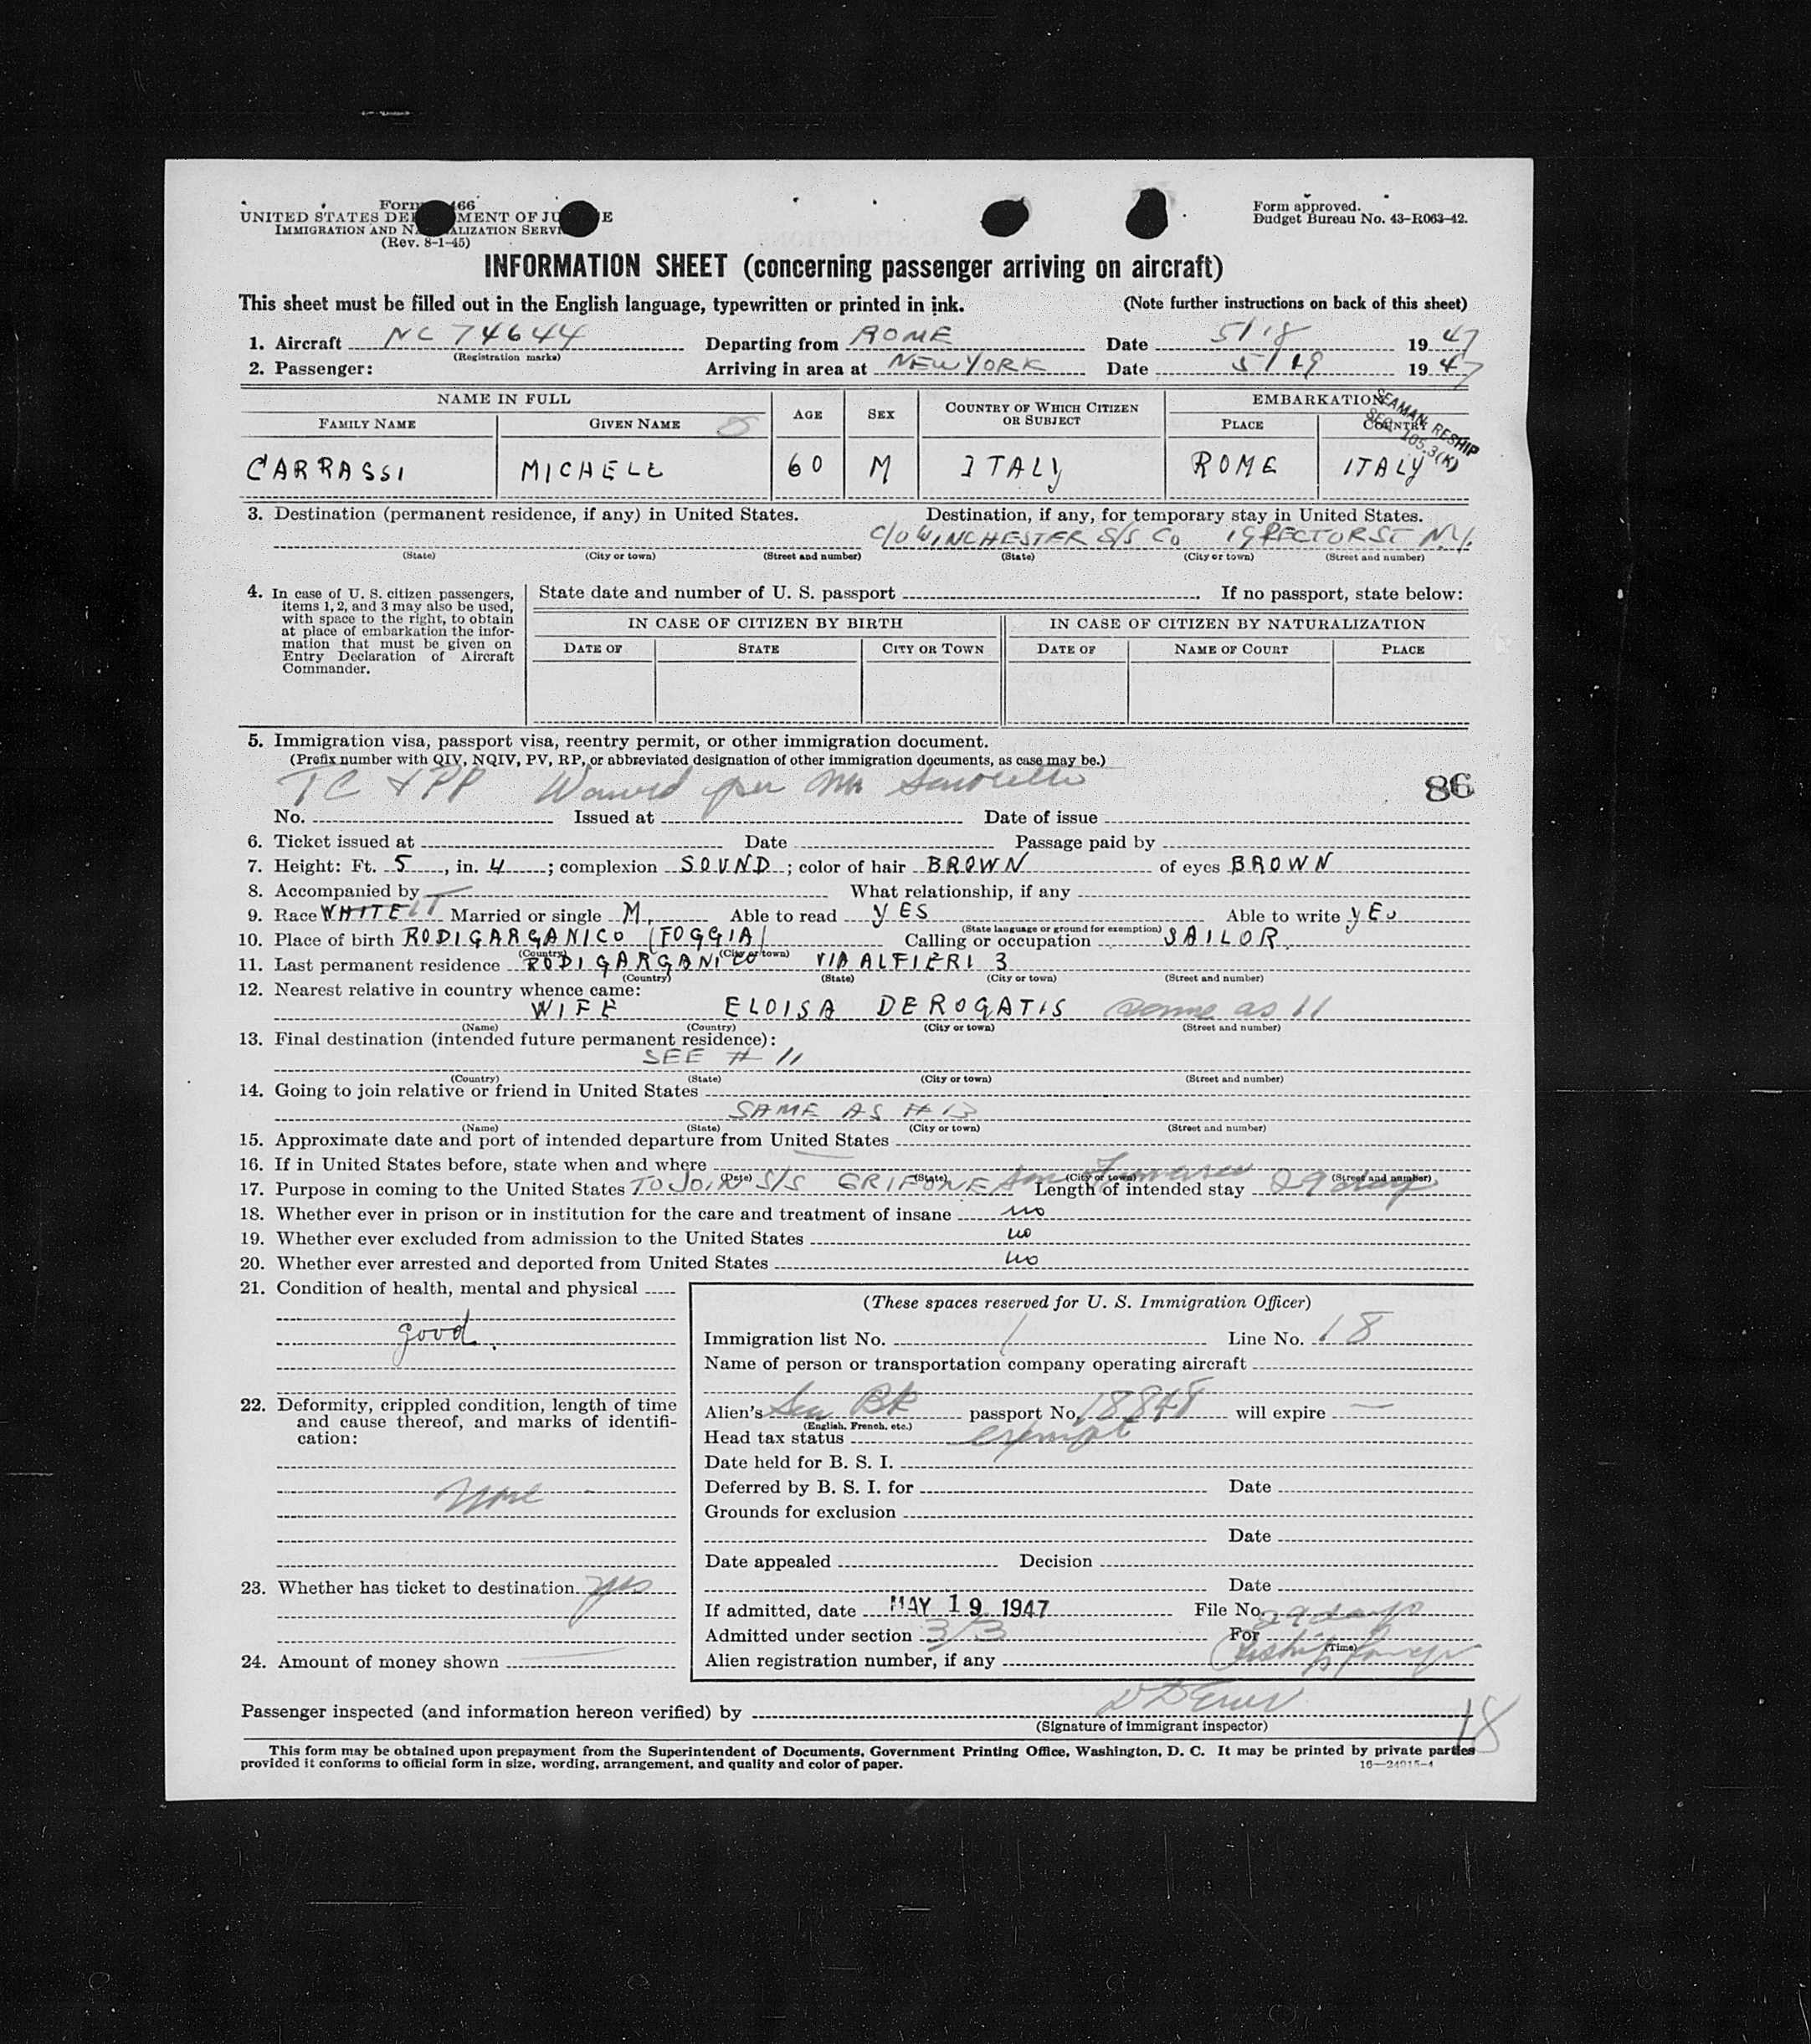 Form 466
UNITED STATES DEPARTMENT OF JUSTICE
IMMIGRATION AND NATURALIZATION SERVICE
(Rev. 8-1-45)
Form approved.
Budget Bureau No. 43-R063-42.
INFORMATION SHEET (concerning passenger arriving on aircraft)
This sheet must be filled out in the English language, typewritten or printed in ink. (Note further instructions on back of this sheet)
1. Aircraft NC 74644 Departing from ROME Date 5/18 1947
(Registration marks)
2. Passenger: Arriving in area at NEW YORK Date 5/19 1947
NAME IN FULL AGE SEX COUNTRY OF WHICH CITIZEN OR SUBJECT EMBARKATION
FAMILY NAME GIVEN NAME PLACE COUNTRY
SEAMAN RESHIP
SEC. 105.3(K)
CARRASSI MICHELE 60 M ITALY ROME ITALY
3. Destination (permanent residence, if any) in United States. Destination, if any, for temporary stay in United States.
C/O WINCHESTER S/S CO 19 RECTOR ST N.Y.
(State) (City or town) (Street and number) (State) (City or town) (Street and number)
4. In case of U. S. citizen passengers, items 1, 2, and 3 may also be used, with space to the right, to obtain at place of embarkation the information that must be given on Entry Declaration of Aircraft Commander.
State date and number of U. S. passport If no passport, state below:
IN CASE OF CITIZEN BY BIRTH IN CASE OF CITIZEN BY NATURALIZATION
DATE OF STATE CITY OR TOWN DATE OF NAME OF COURT PLACE
5. Immigration visa, passport visa, reentry permit, or other immigration document.
(Prefix number with QIV, NQIV, PV, RP, or abbreviated designation of other immigration documents, as case may be.)
TC & PP Waived per Mr 86
No. Issued at Date of issue
6. Ticket issued at Date Passage paid by
7. Height: Ft. 5, in. 4; complexion SOUND; color of hair BROWN of eyes BROWN
8. Accompanied by What relationship, if any
9. Race WHITE IT Married or single M. Able to read YES Able to write YES
(State language or ground for exemption)
10. Place of birth RODIGARGANICO (FOGGIA) Calling or occupation SAILOR
(Country) (City or town)
11. Last permanent residence RODI GARGANICO VIA ALFIERI 3
(Country) (State) (City or town) (Street and number)
12. Nearest relative in country whence came:
WIFE ELOISA DEROGATIS same as 11
(Name) (Country) (City or town) (Street and number)
13. Final destination (intended future permanent residence):
SEE # 11
(Country) (State) (City or town) (Street and number)
14. Going to join relative or friend in United States
SAME AS # 13
(Name) (State) (City or town) (Street and number)
15. Approximate date and port of intended departure from United States
16. If in United States before, state when and where
(Date) (State) (City or town) (Street and number)
17. Purpose in coming to the United States TO JOIN S/S GRIFONE San Francisco Length of intended stay 29 days
18. Whether ever in prison or in institution for the care and treatment of insane no
19. Whether ever excluded from admission to the United States no
20. Whether ever arrested and deported from United States no
21. Condition of health, mental and physical
good.
22. Deformity, crippled condition, length of time and cause thereof, and marks of identification:
None
23. Whether has ticket to destination yes
24. Amount of money shown
(These spaces reserved for U. S. Immigration Officer)
Immigration list No. 1 Line No. 18
Name of person or transportation company operating aircraft
Alien's Sea Bk passport No. 18848 will expire —
(English, French, etc.)
Head tax status exempt
Date held for B. S. I.
Deferred by B. S. I. for Date
Grounds for exclusion
Date
Date appealed Decision
Date
If admitted, date MAY 19 1947 File No.
Admitted under section 3/3 For 29 days
(Time)
Alien registration number, if any
Passenger inspected (and information hereon verified) by
(Signature of immigrant inspector)
18
This form may be obtained upon prepayment from the Superintendent of Documents, Government Printing Office, Washington, D. C. It may be printed by private parties
provided it conforms to official form in size, wording, arrangement, and quality and color of paper. 16—24915-4